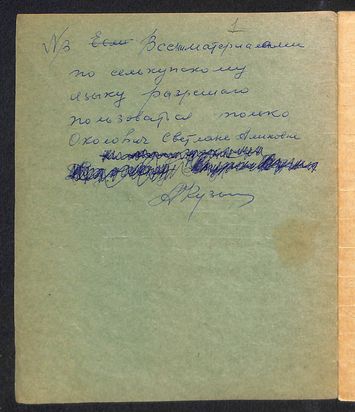 1
№3 Если Всеми материалами
по селькупскому
языку разрешаю
пользоваться только
Околович Светлане
АКузь